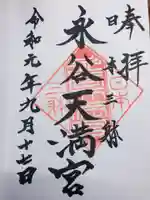 奉拝
日本三躰
永谷天満宮
令和元年九月十七日